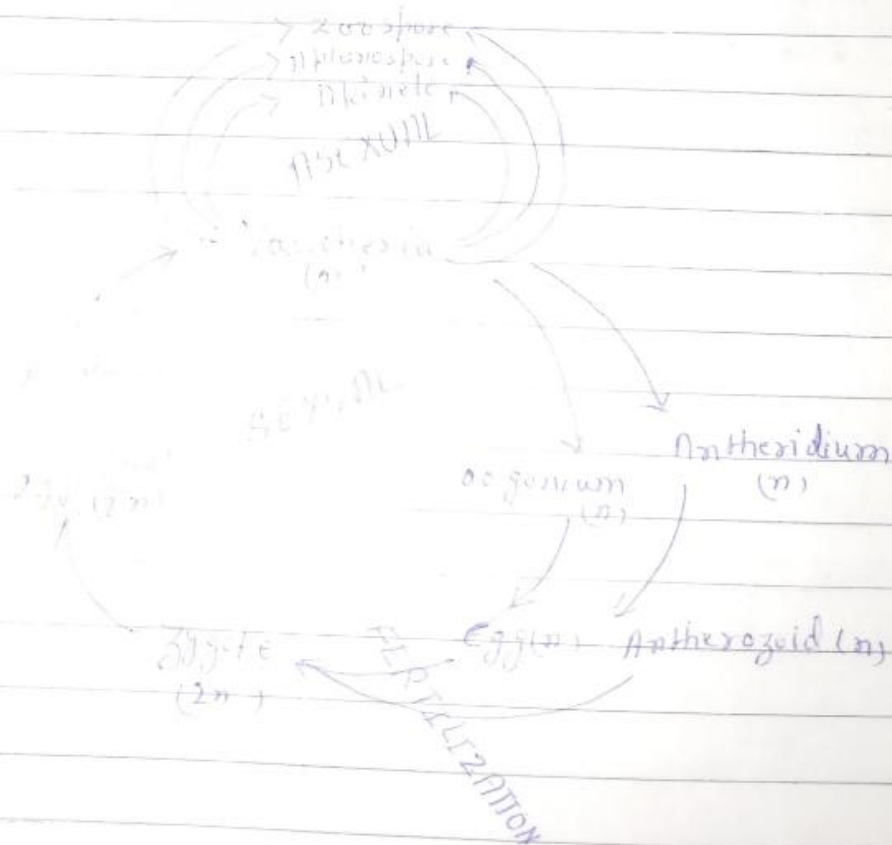 Zoospore
Aplanospore
Akinete
ASEXUAL
Vaucheria
(n)
SEXUAL
Antheridium
(n)
oogonium
(n)
(2n)
Egg(n)
Antherozoid (n)
Zygote
(2n)
FERTILIZATION